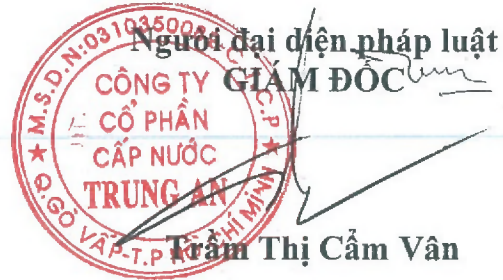 Người đại diện pháp luật
GIÁM ĐỐC
M.S.D.N:03103500
C.T.C.P
CÔNG TY
CỔ PHẦN
CẤP NƯỚC
TRUNG AN
Q.GÒ VẤP-T.P HỒ CHÍ MINH
Trầm Thị Cẩm Vân